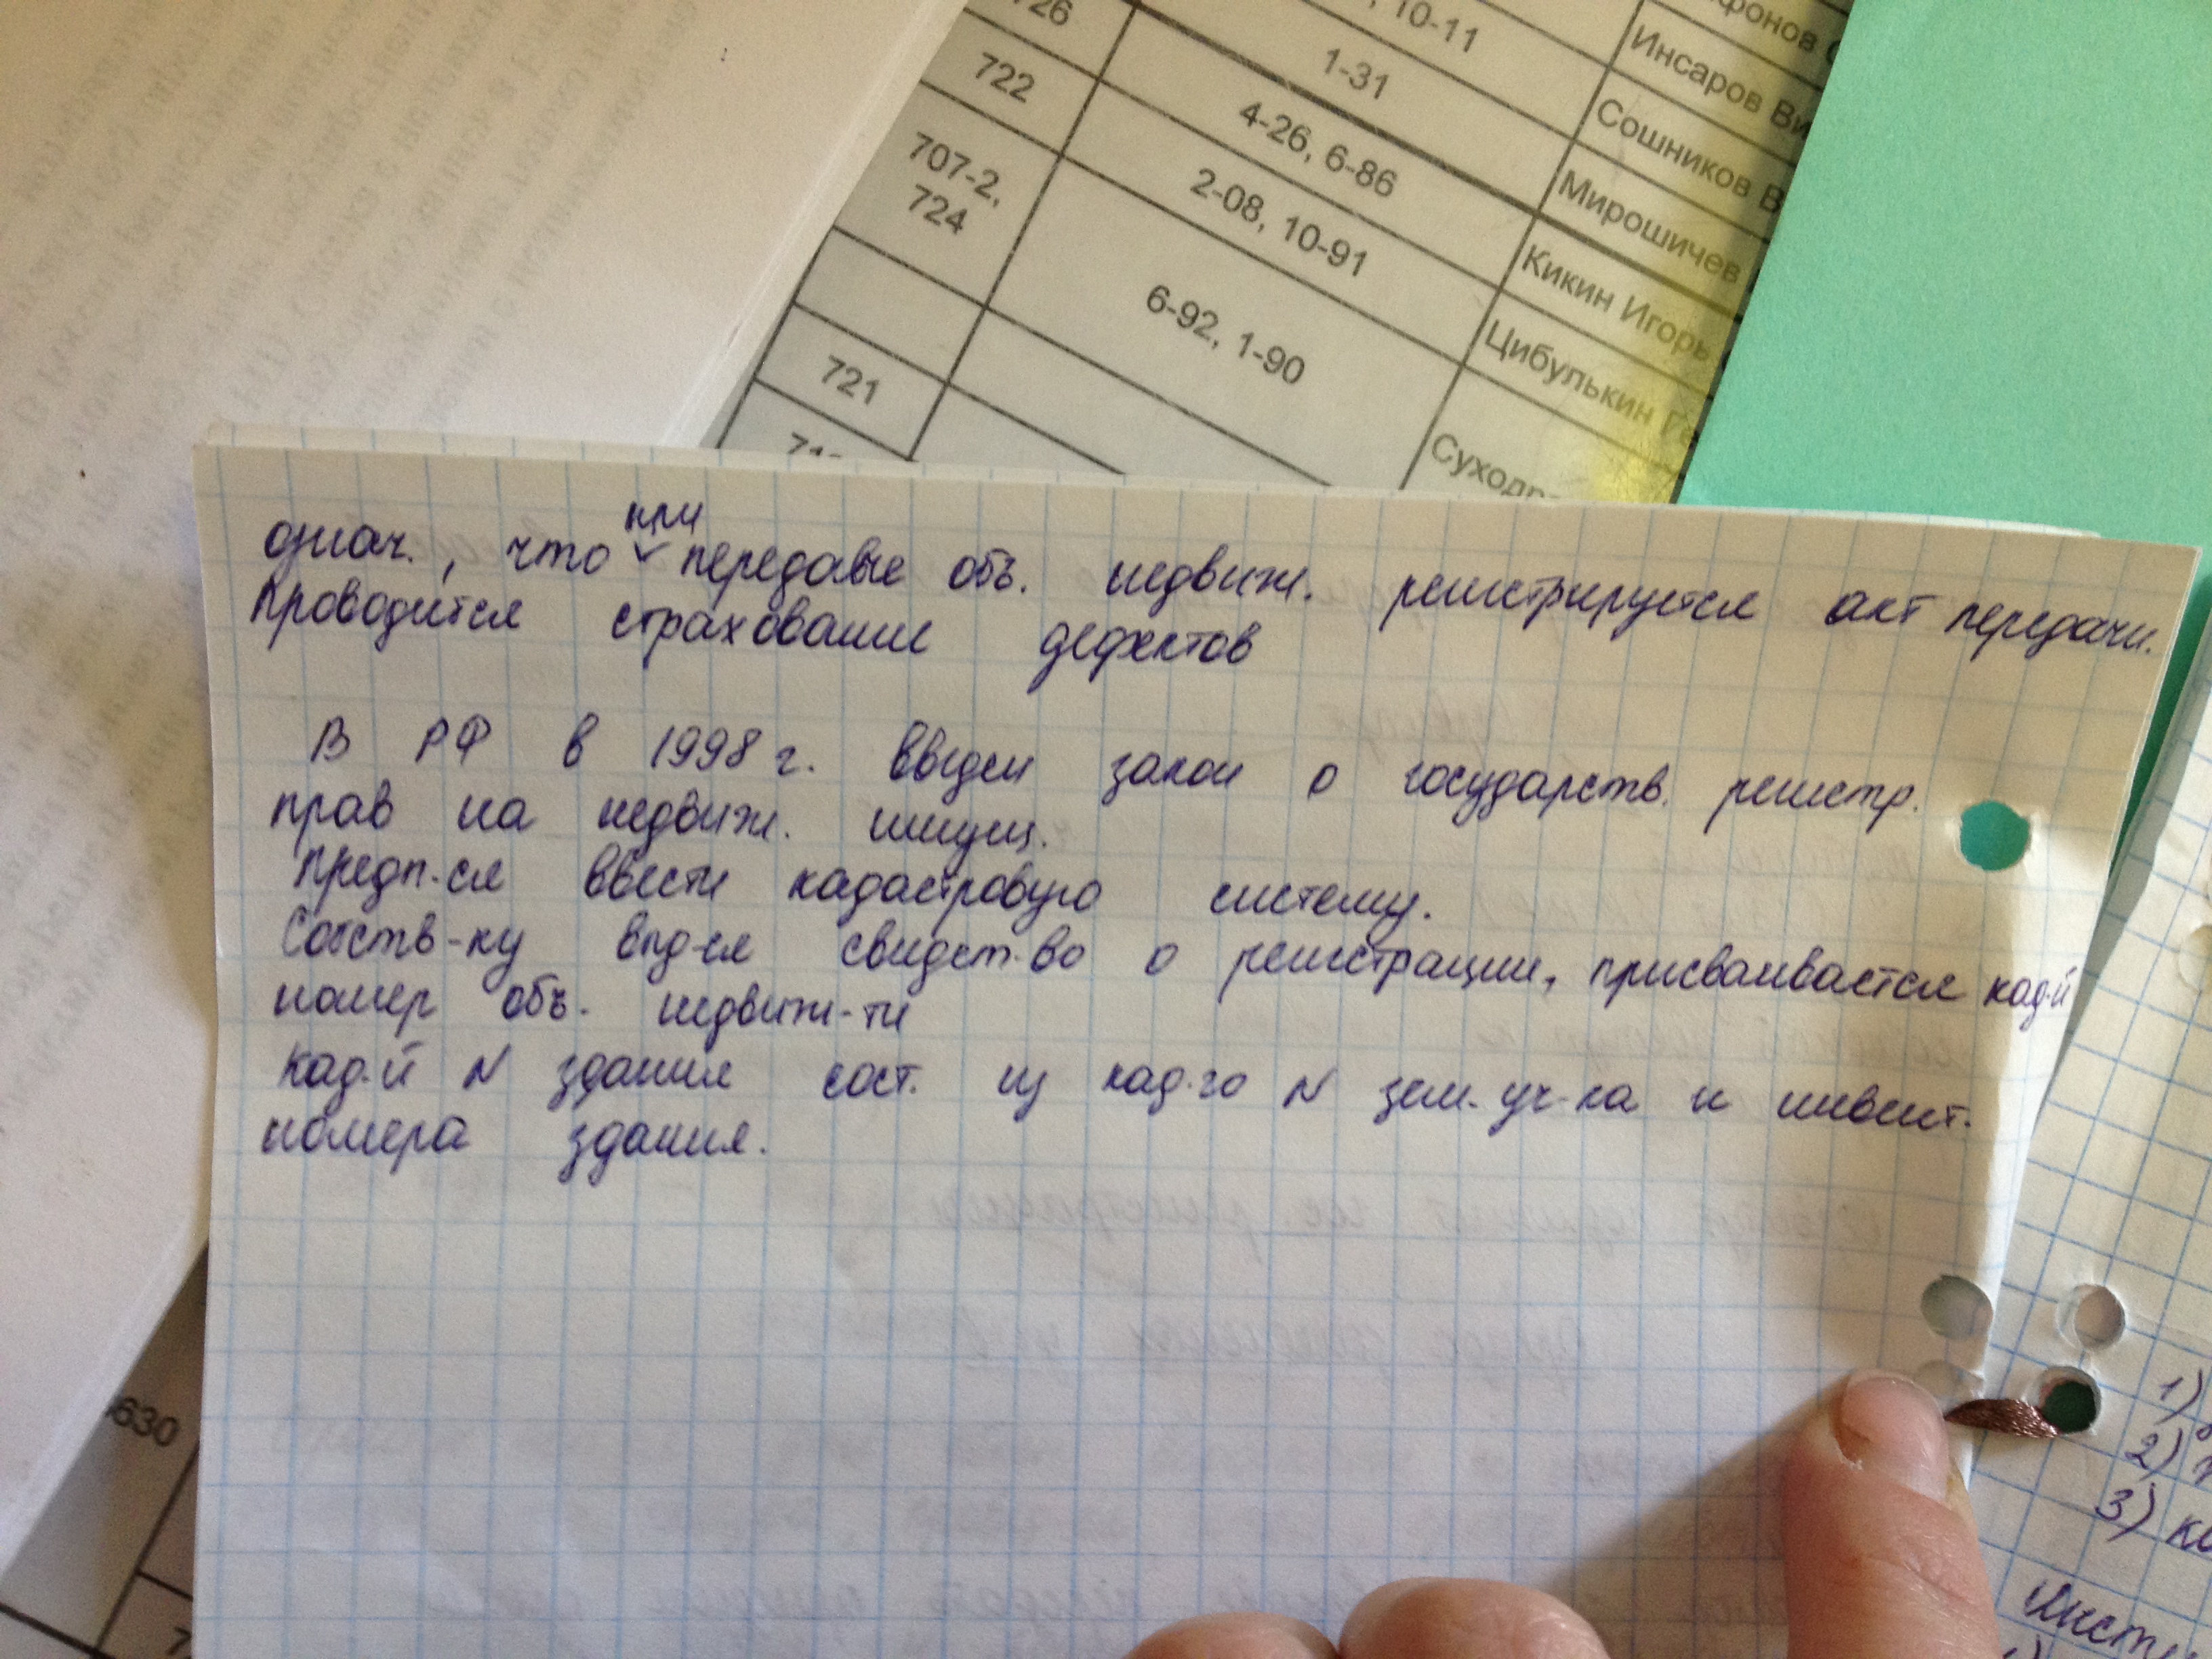 726
, 10-11
722
1-31
707-2,
724
4-26, 6-86
2-08, 10-91
6-92, 1-90
721
Инсаров Ви
Сошников В
Мирошичев
Кикин Игорь
Цибулькин Ге
Суходр
означ., что при передаче объ. недвиж. регистрируется акт передачи.
Проводится страхование дефектов
В РФ в 1998 г. введен закон о государств. регистр.
прав на недвиж. имущ.
Предп-ся ввести кадастровую систему.
Собств-ку выд-ся свидет-во о регистрации, присваивается кад-й
номер объ. недвиж-ти
Кад-й N здания сост. из кад-го N зем. уч-ка и инвент.
номера здания.
630
1)
2)
3)